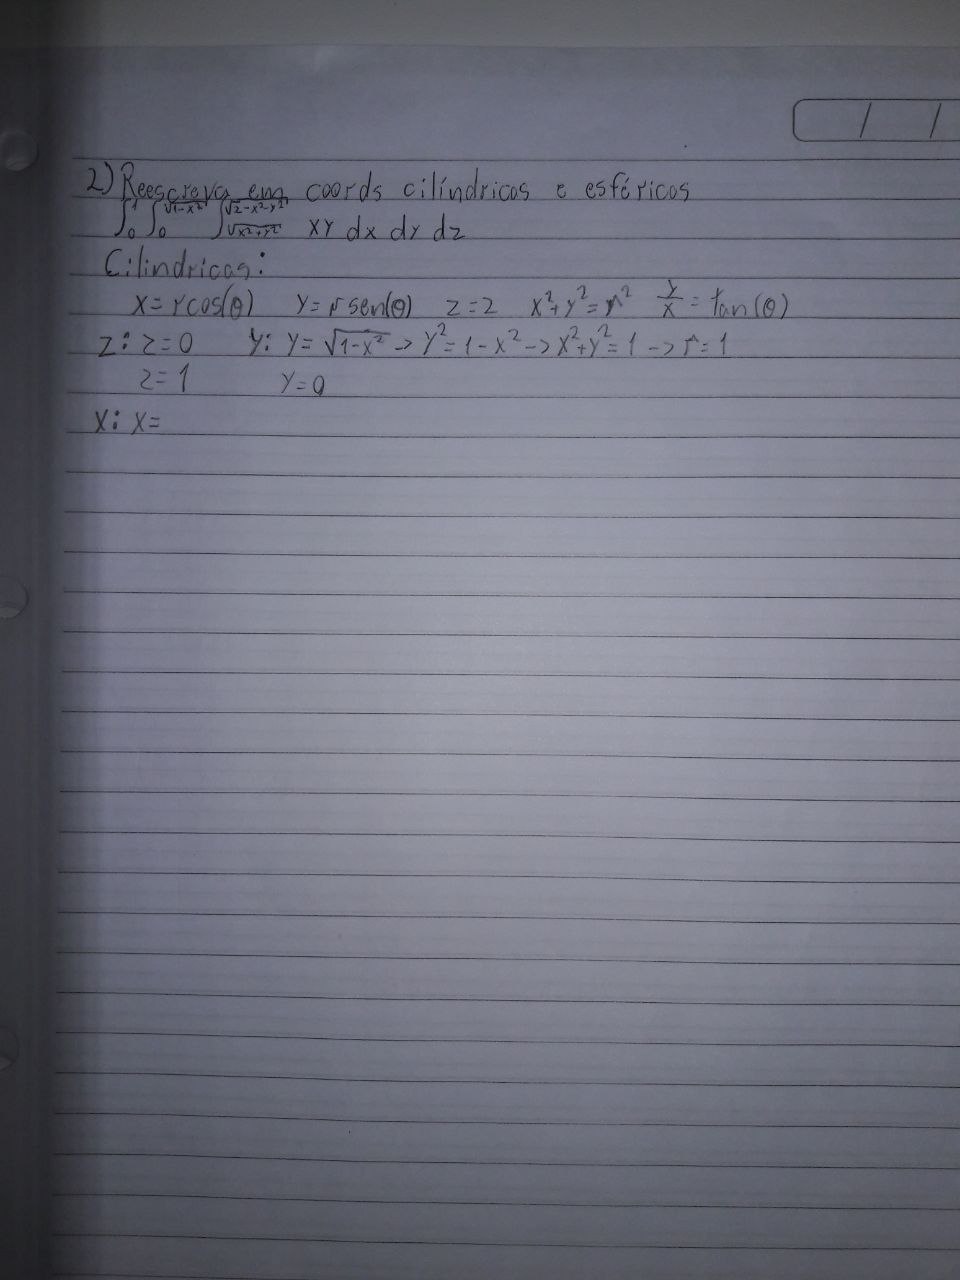 2) Reescreva em coords cilíndricos e esféricos
∫₀¹ ∫₀^√(1-x²) ∫_√(x²+y²)^√(2-x²-y²) xy dx dy dz
Cilindricas:
x=rcos(θ) y=rsen(θ) z=z x²+y²=r² y/x=tan(θ)
z: z=0 y: y=√(1-x²) -> y²=1-x² -> x²+y²=1 -> r=1
z=1 y=0
x: x=